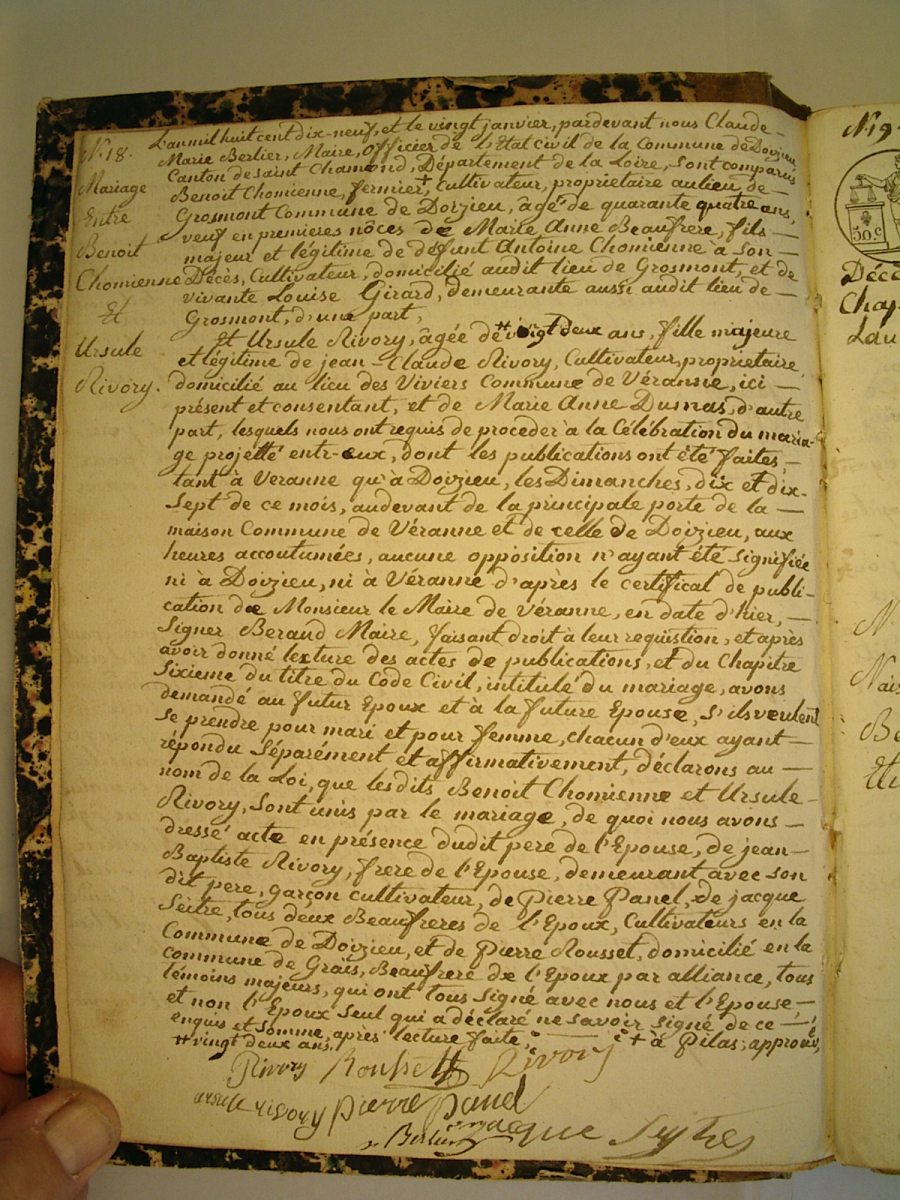 N.° 18.
Mariage
Entre
Benoit
Chomienne
Et
Ursule
Rivory.
L'an mil huit cent dix-neuf, et le vingt janvier, pardevant nous Claude-
Marie Berlier, Maire, officier de l'Etat Civil de la Commune de Doizieu,
Canton de saint Chamond, Département de la Loire, sont comparus
Benoit Chomienne, fermier + Cultivateur, proprietaire au lieu de —
Grosmont Commune de Doizieu, âgé de quarante quatre ans,
veuf en premieres nôces de Marie Anne Beaufrere, fils —
majeur et légitime de défunt Antoine Chomienne à son —
Décès, Cultivateur, domicilié audit lieu de Grosmont, et de
vivante Louise Girard, demeurante aussi audit lieu de —
Grosmont, d'une part,
Et Ursule Rivory, âgée de # vingt deux ans, fille majeure
et légitime de jean-Claude Rivory, Cultivateur, proprietaire,
domicilié au lieu des Viviers Commune de Véranne, ici —
présent et consentant, et de Marie Anne Dumas, d'autre
part, lesquels nous ont requis de proceder à la Célébration du maria-
ge projetté entr-eux, dont les publications ont été faites,
tant à Veranne qu'à Doizieu, les Dimanches, dix et dix-
sept de ce mois, audevant de la principale porte de la —
maison Commune de Véranne et de celle de Doizieu, aux
heures accoutumées, aucune opposition n'ayant été signifiée
ni à Doizieu, ni à Véranne d'après le certificat de publi-
cation de Monsieur le Maire de Véranne, en date d'hier, —
Signer Beraud Maire, faisant droit à leur requistion, et après
avoir donné lecture des actes de publications, et du Chapitre
Sixieme du titre du Code Civil, intitulé du mariage, avons
demandé au futur Epoux et à la future Epouse, s'ils veulent
se prendre pour mari et pour femme, chacun d'eux ayant —
répondu séparément et affirmativement, déclarons au —
nom de la Loi, que lesdits Benoit Chomienne et Ursule-
Rivory, sont unis par le mariage, de quoi nous avons —
dressé acte en présence dudit pere de l'Epouse, de jean—
Baptiste Rivory, frere de l'Epouse, demeurant avec son
dit pere, garçon cultivateur, de Pierre Panel, de jacque
Seitre, tous deux Beaufreres de l'Epoux, Cultivateurs en la
Commune de Doizieu, et de Pierre Rousset, domicilié en la
commune de Graïs, Beaufrere de l'Epoux par alliance, tous
témoins majeurs, qui ont tous signé avec nous et l'Epouse,—
et non l'Epoux seul qui a déclaré ne savoir signé de ce —
enquis et sommé, après lecture faite, — + à Pilas; approuvé,
# vingt deux ans,
Rivory Rousset Rivory
ursule rivory pierre panel
Berlier jacque Seytres
N.° 19.
50 c
Déce
Chap
Lau
N.
Nais
Be
Et